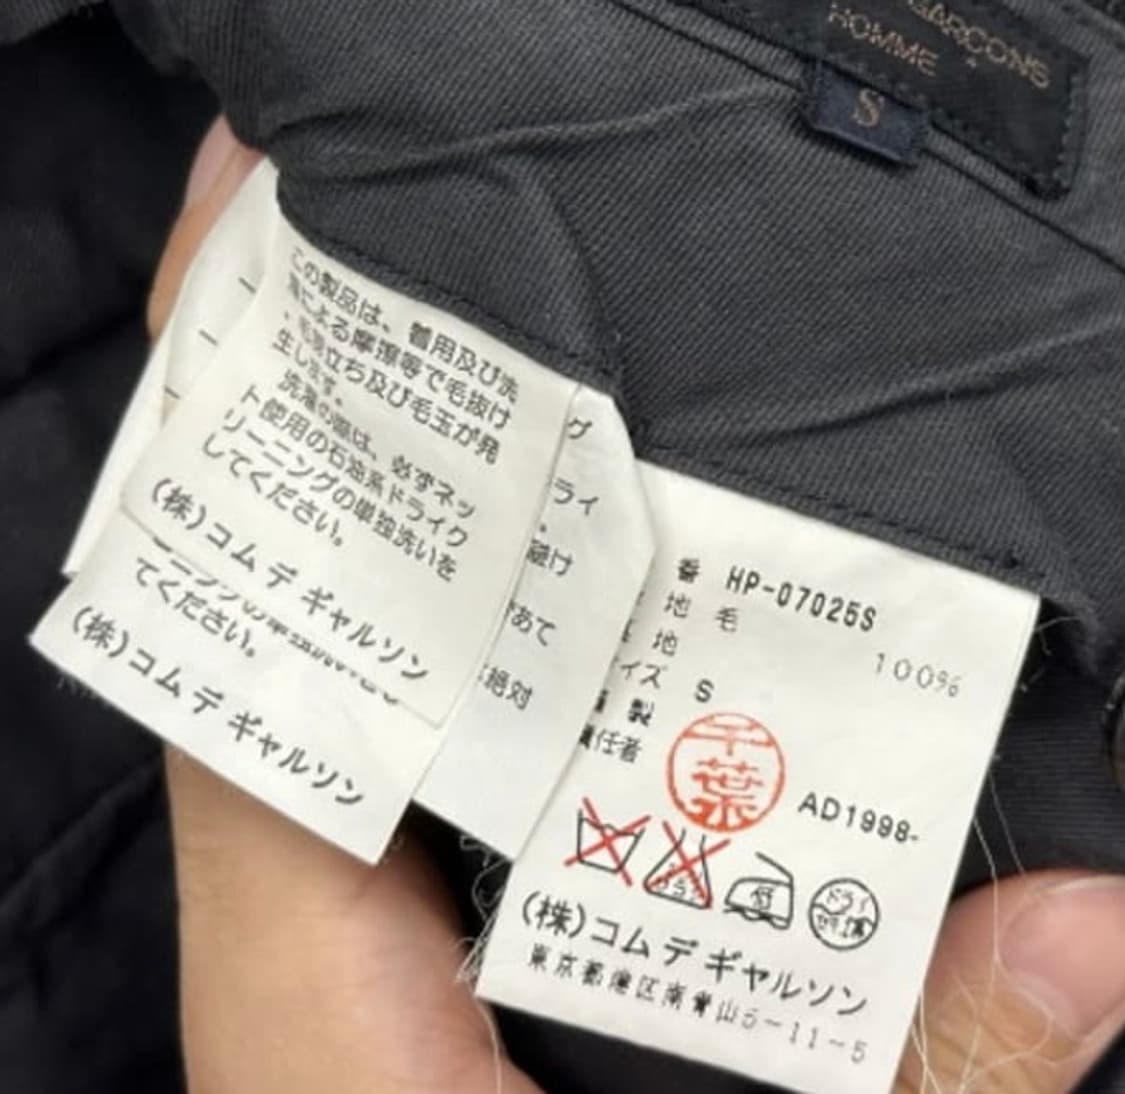 GARCONS
HOMME
S
この製品は、着用及び洗
濯による摩擦等で毛抜け
・毛羽立ち及び毛玉が発
生します。
洗濯の際は、必ずネッ
ト使用の石油系ドライク
リーニングの単独洗いを
してください。
(株)コムデギャルソン
てください。
(株)コムデギャルソン
グ
ライ
避け
あて
絶対
番 HP-07025S
地 毛 100%
地
イズ S
製
責任者 千葉
AD1998-
低
ドライ
(株)コムデギャルソン
東京都港区南青山5-11-5